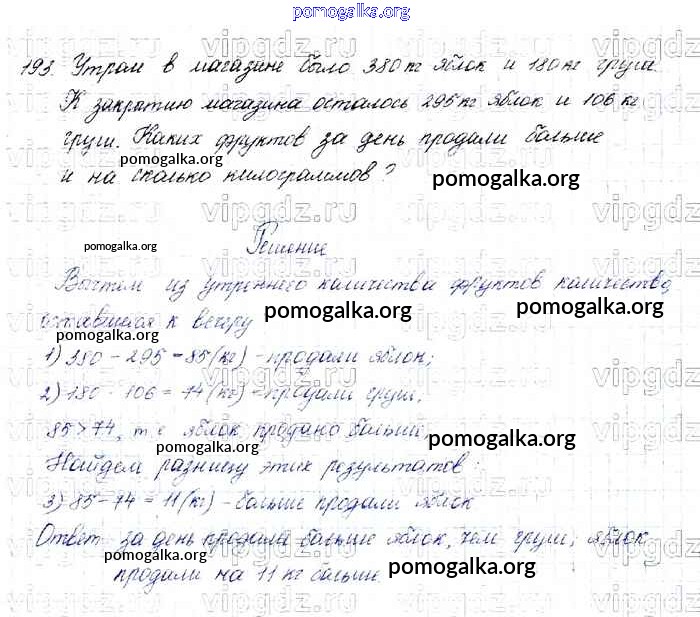 pomogalka.org
193. Утром в магазине было 380 кг яблок и 180 кг груш.
К закрытию магазина осталось 295 кг яблок и 106 кг
груш. Каких фруктов за день продали больше
и на сколько килограммов?
pomogalka.org
pomogalka.org
vipgdz.ru
pomogalka.org
Решение
Вычтем из утреннего количества фруктов количество,
оставшееся к вечеру
pomogalka.org
pomogalka.org
pomogalka.org
1) 380 - 295 = 85 (кг) - продали яблок;
2) 180 - 106 = 74 (кг) - продали груш;
85 > 74, т.е. яблок продано больше,
pomogalka.org
pomogalka.org
Найдем разницу этих результатов:
3) 85 - 74 = 11 (кг) - больше продали яблок
Ответ за день продали больше яблок, чем груш; яблок
продали на 11 кг больше.
pomogalka.org
pomogalka.org